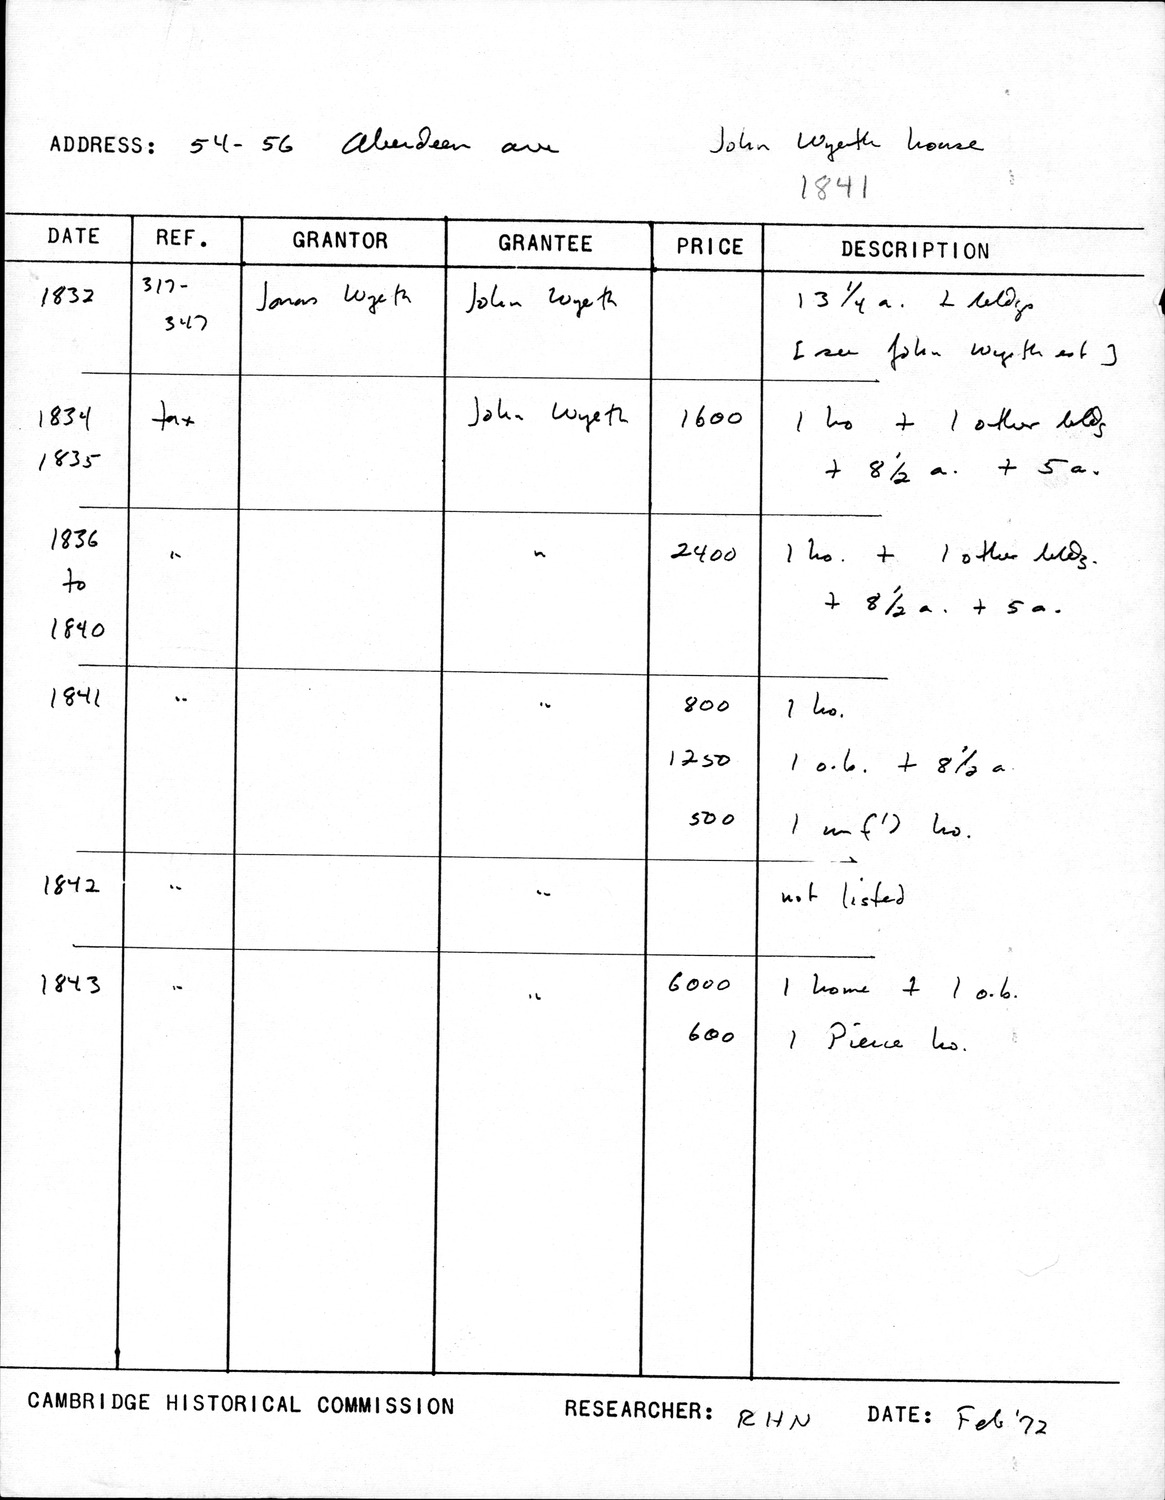 ADDRESS: 54-56 Aberdeen ave John Wyeth house
1841
DATE REF. GRANTOR GRANTEE PRICE DESCRIPTION
1832 317- Jonas Wyeth John Wyeth 13 1/4 a. + bldgs
347 [see John Wyeth est]
1834 tax John Wyeth 1600 1 ho + 1 other bldg
1835 + 8 1/2 a. + 5 a.
1836 " " 2400 1 ho. + 1 other bldg.
to + 8 1/2 a. + 5 a.
1840
1841 " " 800 1 ho.
1250 1 o.b. + 8 1/2 a
500 1 unf'd ho.
1842 " " not listed
1843 " " 6000 1 home + 1 o.b.
600 1 Pierce ho.
CAMBRIDGE HISTORICAL COMMISSION RESEARCHER: RHN DATE: Feb '72